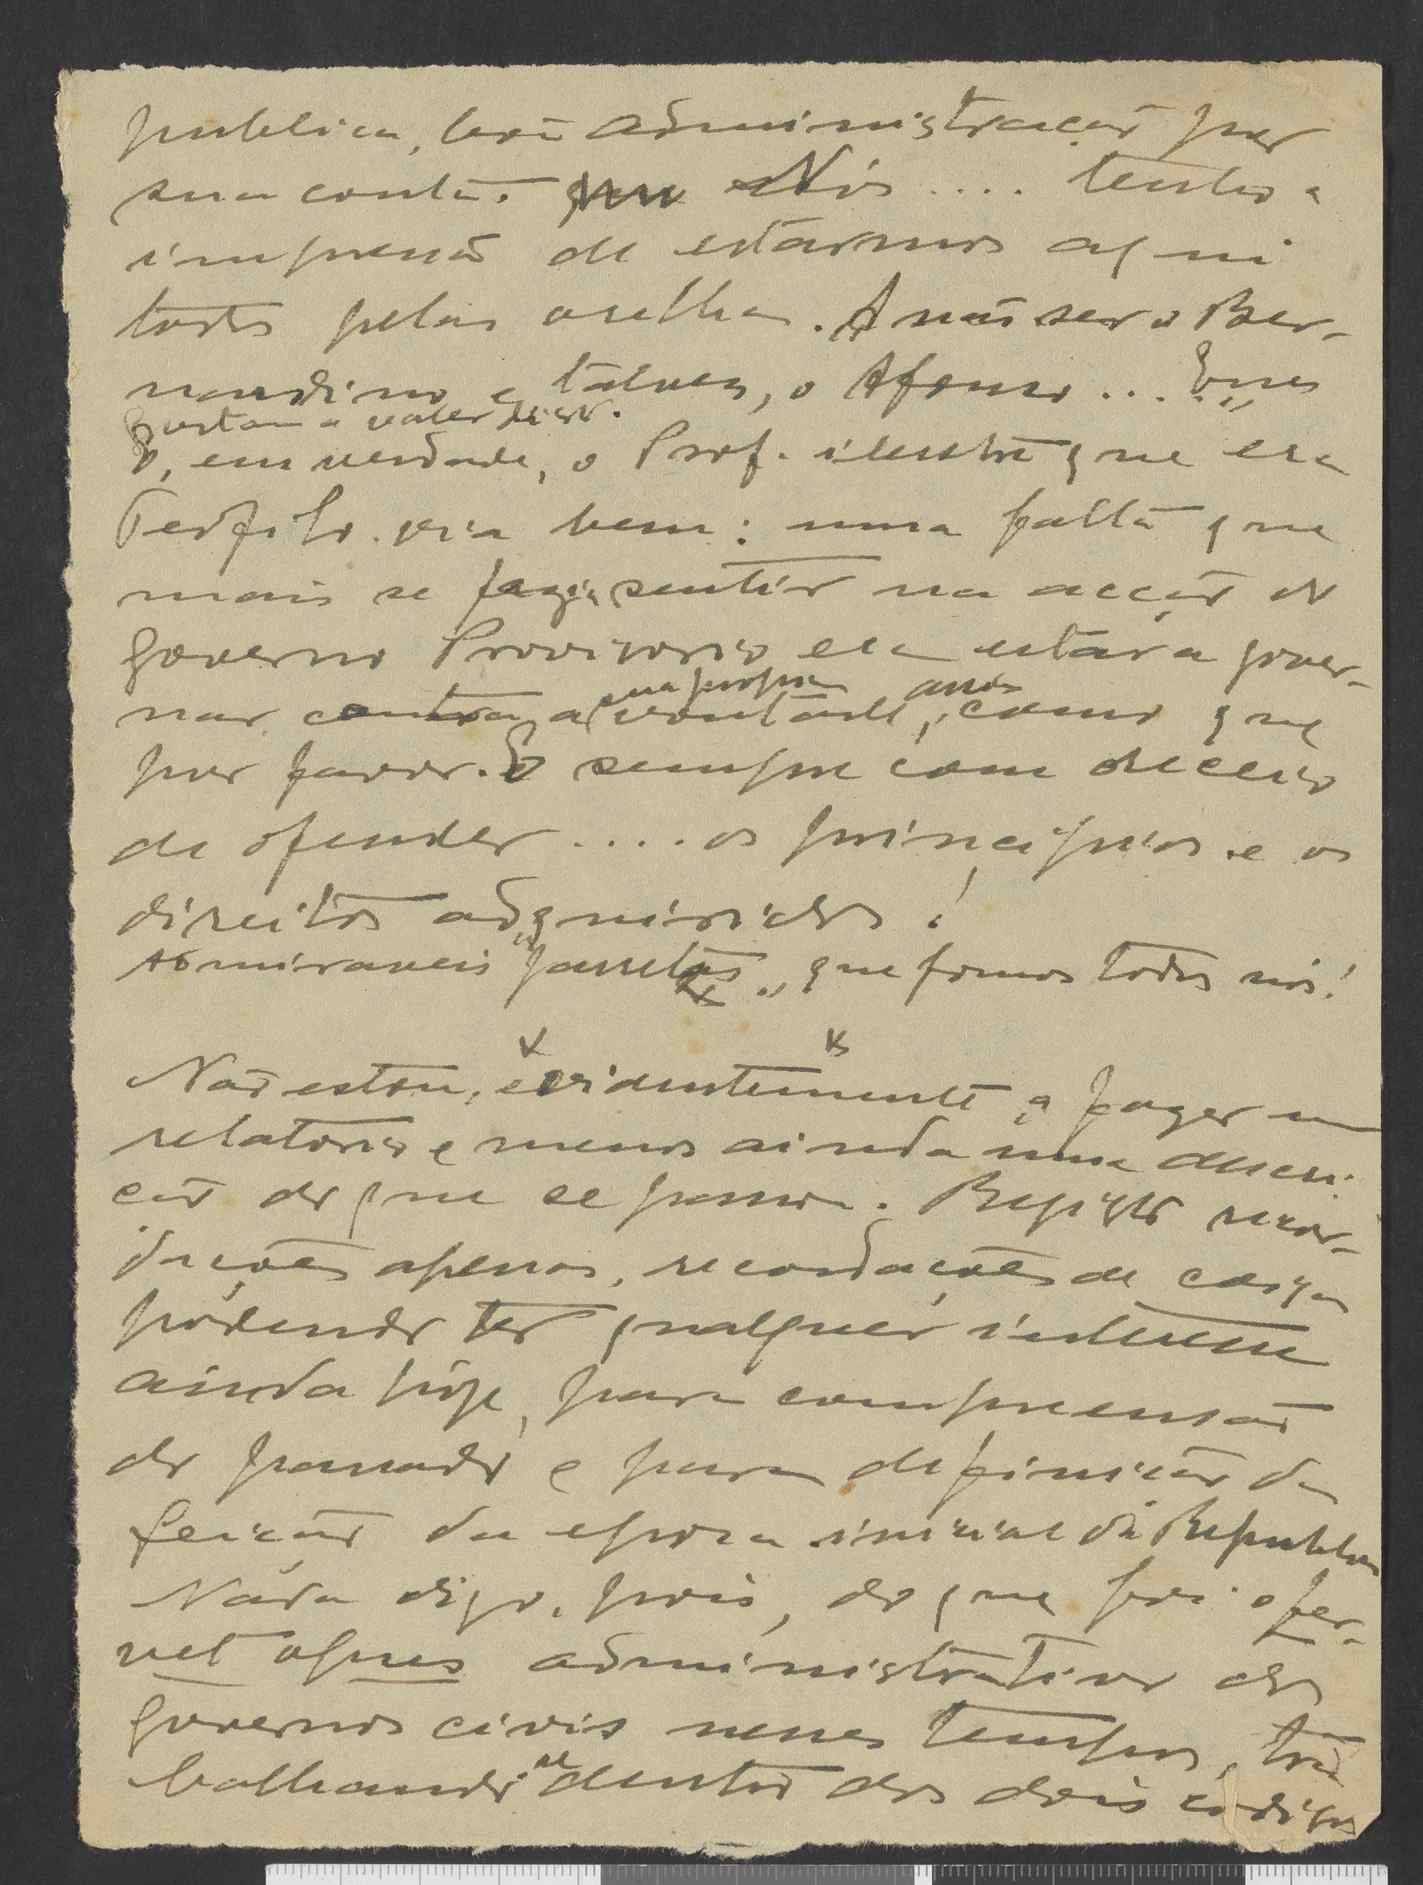 publica, boa administração por
sua conta. Nós.... tenho a
impressão de estarmos aqui
todos pelas orelhas. A não ser o Ber-
nardino e talvez, o Afonso...
gostam a valer disto.
E, em verdade, o Prof. ilustre que era
Teofilo via bem: uma falta que
mais se fazia sentir na acção do
Governo Provisorio era estar a gover-
nar contra a sua propria vontade, assim como que
por favor. E sempre com receio
de ofender .... os principios e os
direitos adquiridos!
Admiraveis "patetas" que fomos todos nós!
Não estou, evidentemente, a fazer um
relatorio e menos ainda uma descri-
ção do que se passou. Registo recor-
dações apenas, recordações de
podendo ter qualquer interesse
ainda hoje, para compreensão
do passado e para definição da
feição da epoca inicial da Republica
Nada digo, pois, do que foi o fer-
vet opus administrativo dos
governos civis nesses tempos, tra-
balhando dentro dos dois codigos